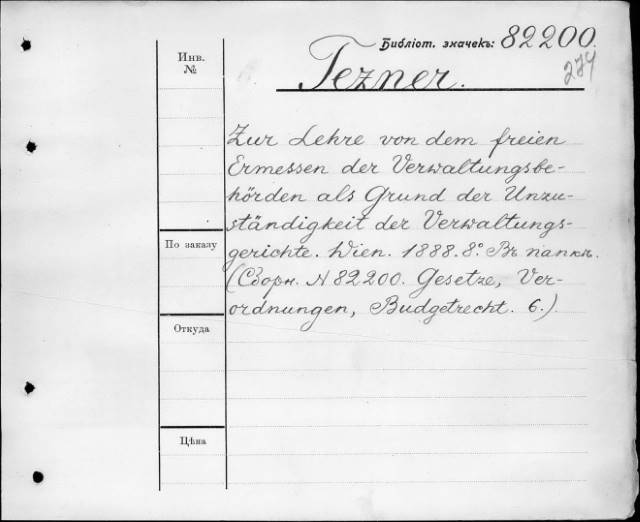 Библіот. значекъ: 82200.
274
Инв.
№
Tezner.
Zur Lehre von dem freien
Ermessen der Verwaltungsbe-
hörden als Grund der Unzu-
ständigkeit der Verwaltungs-
gerichte. Wien. 1888. 8.° Въ папкѣ.
(Сборн. N 82200. Gesetze, Ver-
ordnungen, Budgetrecht. 6.)
По заказу
Откуда
Цѣна